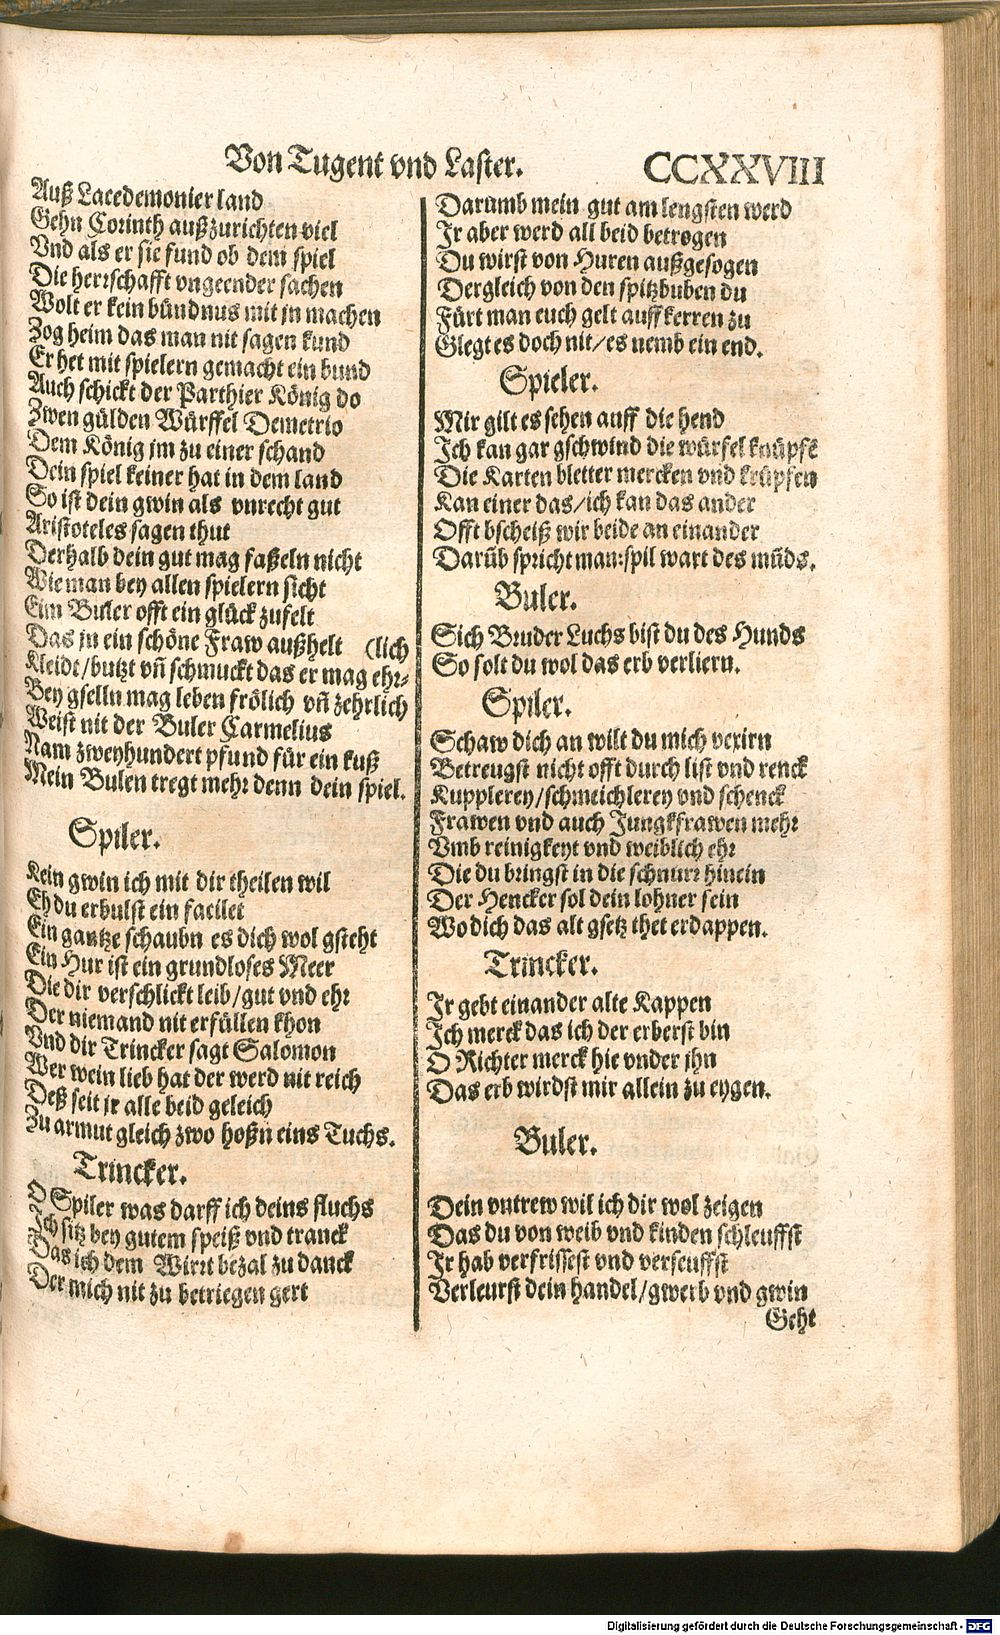 Von Tugent vnd Laster. CCXXVIII
Auß Lacedemonier land
Gehn Corinth außzurichten viel
Vnd als er sie fund ob dem spiel
Die herrschafft vngeender sachen
Wolt er kein bündnus mit jn machen
Zog heim das man nit sagen kund
Er het mit spielern gemacht ein bund
Auch schickt der Parthier König do
Zwen gülden Würffel Demetrio
Dem König jm zu einer schand
Dein spiel keiner hat in dem land
So ist dein gwin als vnrecht gut
Aristoteles sagen thut
Derhalb dein gut mag faßeln nicht
Wie man bey allen spielern sicht
Eim Buler offt ein glück zufelt
Das jn ein schöne Fraw außhelt (lich
Kleidt/butzt vñ schmuckt das er mag ehr-
Bey gselln mag leben frölich vñ zehrlich
Weist nit der Buler Carmelius
Nam zweyhundert pfund für ein kuß
Mein Bulen tregt mehr denn dein spiel.
Spiler.
Kein gwin ich mit dir theilen wil
Eh du erbulst ein facilet
Ein gantze schaubn es dich wol gsteht
Ein Hur ist ein grundloses Meer
Die dir verschlickt leib/gut vnd ehr
Der niemand nit erfüllen khon
Vnd dir Trincker sagt Salomon
Wer wein lieb hat der werd nit reich
Deß seit jr alle beid geleich
Zu armut gleich zwo hoßn eins Tuchs.
Trincker.
O Spiler was darff ich deins fluchs
Ich sitz bey gutem speiß vnd tranck
Das ich dem Wirrt bezal zu danck
Der mich nit zu betriegen gert
Darumb mein gut am lengsten werd
Jr aber werd all beid betrogen
Du wirst von Huren außgesogen
Dergleich von den spitzbuben du
Fürt man euch gelt auff kerren zu
Glegt es doch nit/es nemb ein end.
Spieler.
Mir gilt es sehen auff die hend
Ich kan gar gschwind die würfel knüpfē
Die Karten bletter mercken vnd krüpfen
Kan einer das/ich kan das ander
Offt bscheiß wir beide an einander
Darüb spricht man:spil wart des mūds.
Buler.
Sich Bruder Luchs bist du des Hunds
So solt du wol das erb verliern.
Spiler.
Schaw dich an wilt du mich vexirn
Betreugst nicht offt durch list vnd renck
Kupplerey/schmeichlerey vnd schenck
Frawen vnd auch Jungkfrawen mehr
Vmb reinigkeyt vnd weiblich ehr
Die du bringst in die schnurr hinein
Der Hencker sol dein lohner sein
Wo dich das alt gsetz thet erdappen.
Trincker.
Jr gebt einander alte Kappen
Ich merck das ich der erberst bin
O Richter merck hie vnder jhn
Das erb wirdst mir allein zu eygen.
Buler.
Dein vntrew wil ich dir wol zeigen
Das du von weib vnd kinden schleuffst
Jr hab verfrissest vnd verseuffst
Verleurst dein handel/gwerb vnd gwin
Geht
Digitalisierung gefördert durch die Deutsche Forschungsgemeinschaft - DFG